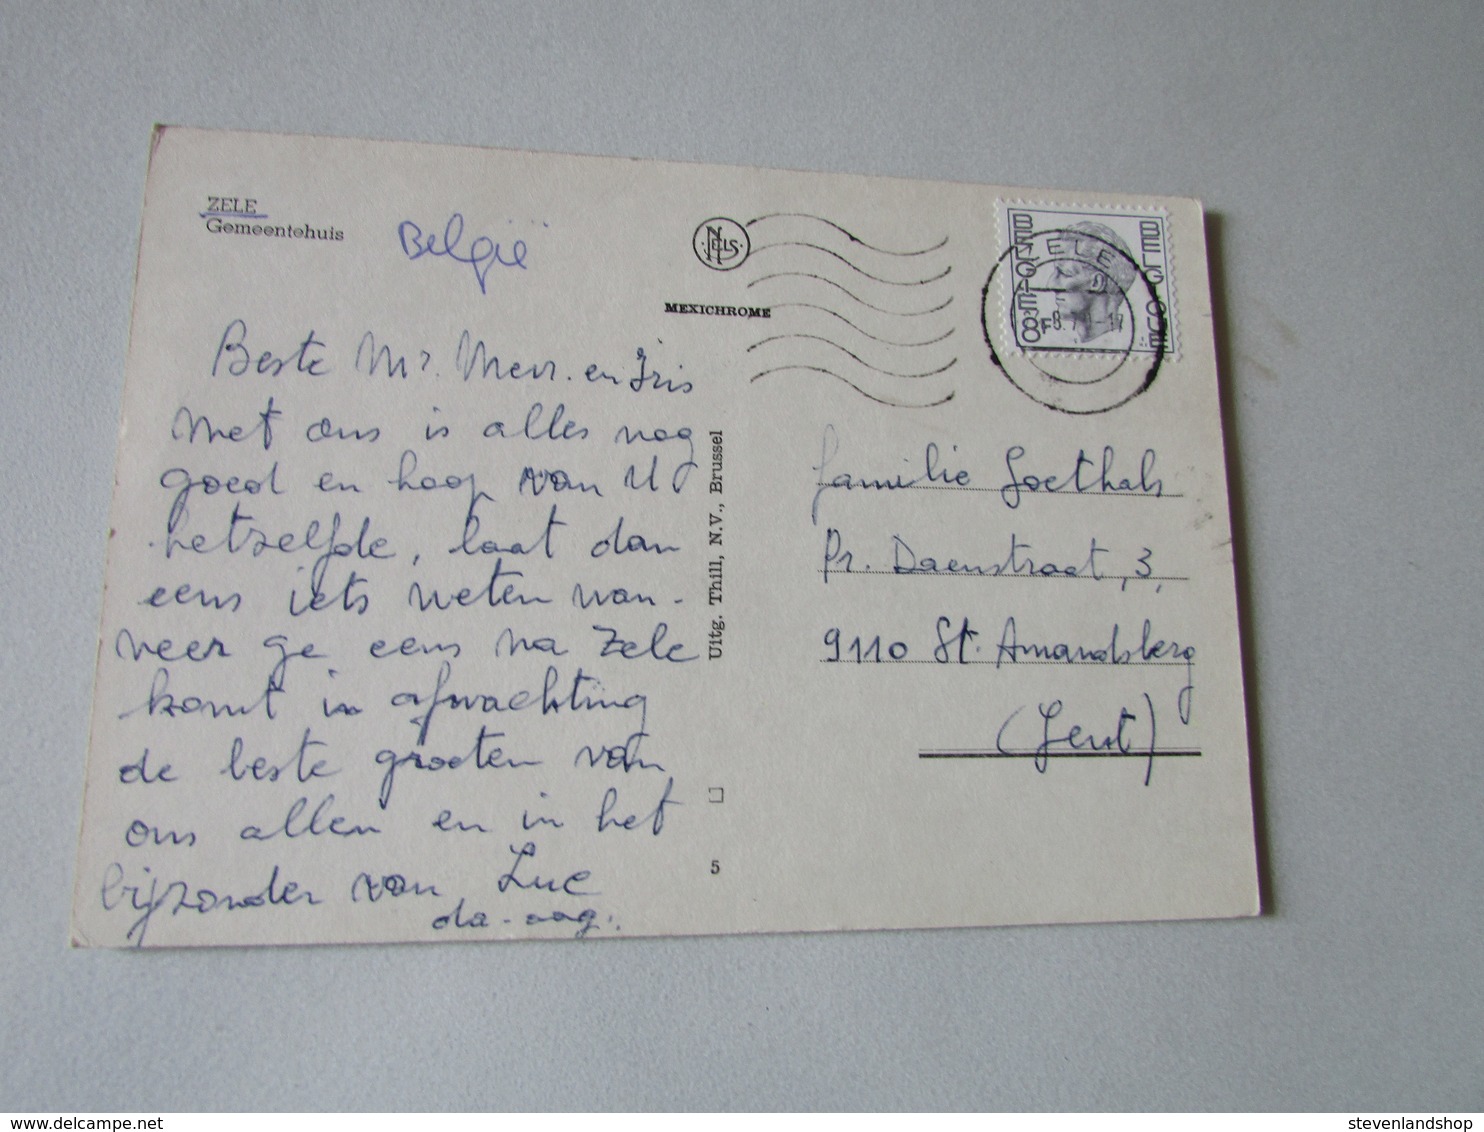 ZELE
Gemeentehuis
België
NELS
MEXICHROME
BELGIE
BELGIQUE
8F
ELE
Beste Mr. Mevr. en Iris
met ons is alles nog
goed en hoop van U
hetzelfde, laat dan
eens iets weten wan-
neer ge eens na Zele
komt in afwachting
de beste groeten van
ons allen en in het
bijzonder van Luc
da-aag.
Uitg. Thill, N.V., Brussel
5
familie Goethals
Pr. Daenstraat, 3,
9110 St. Amandsberg
(Gent)
stevenlandshop